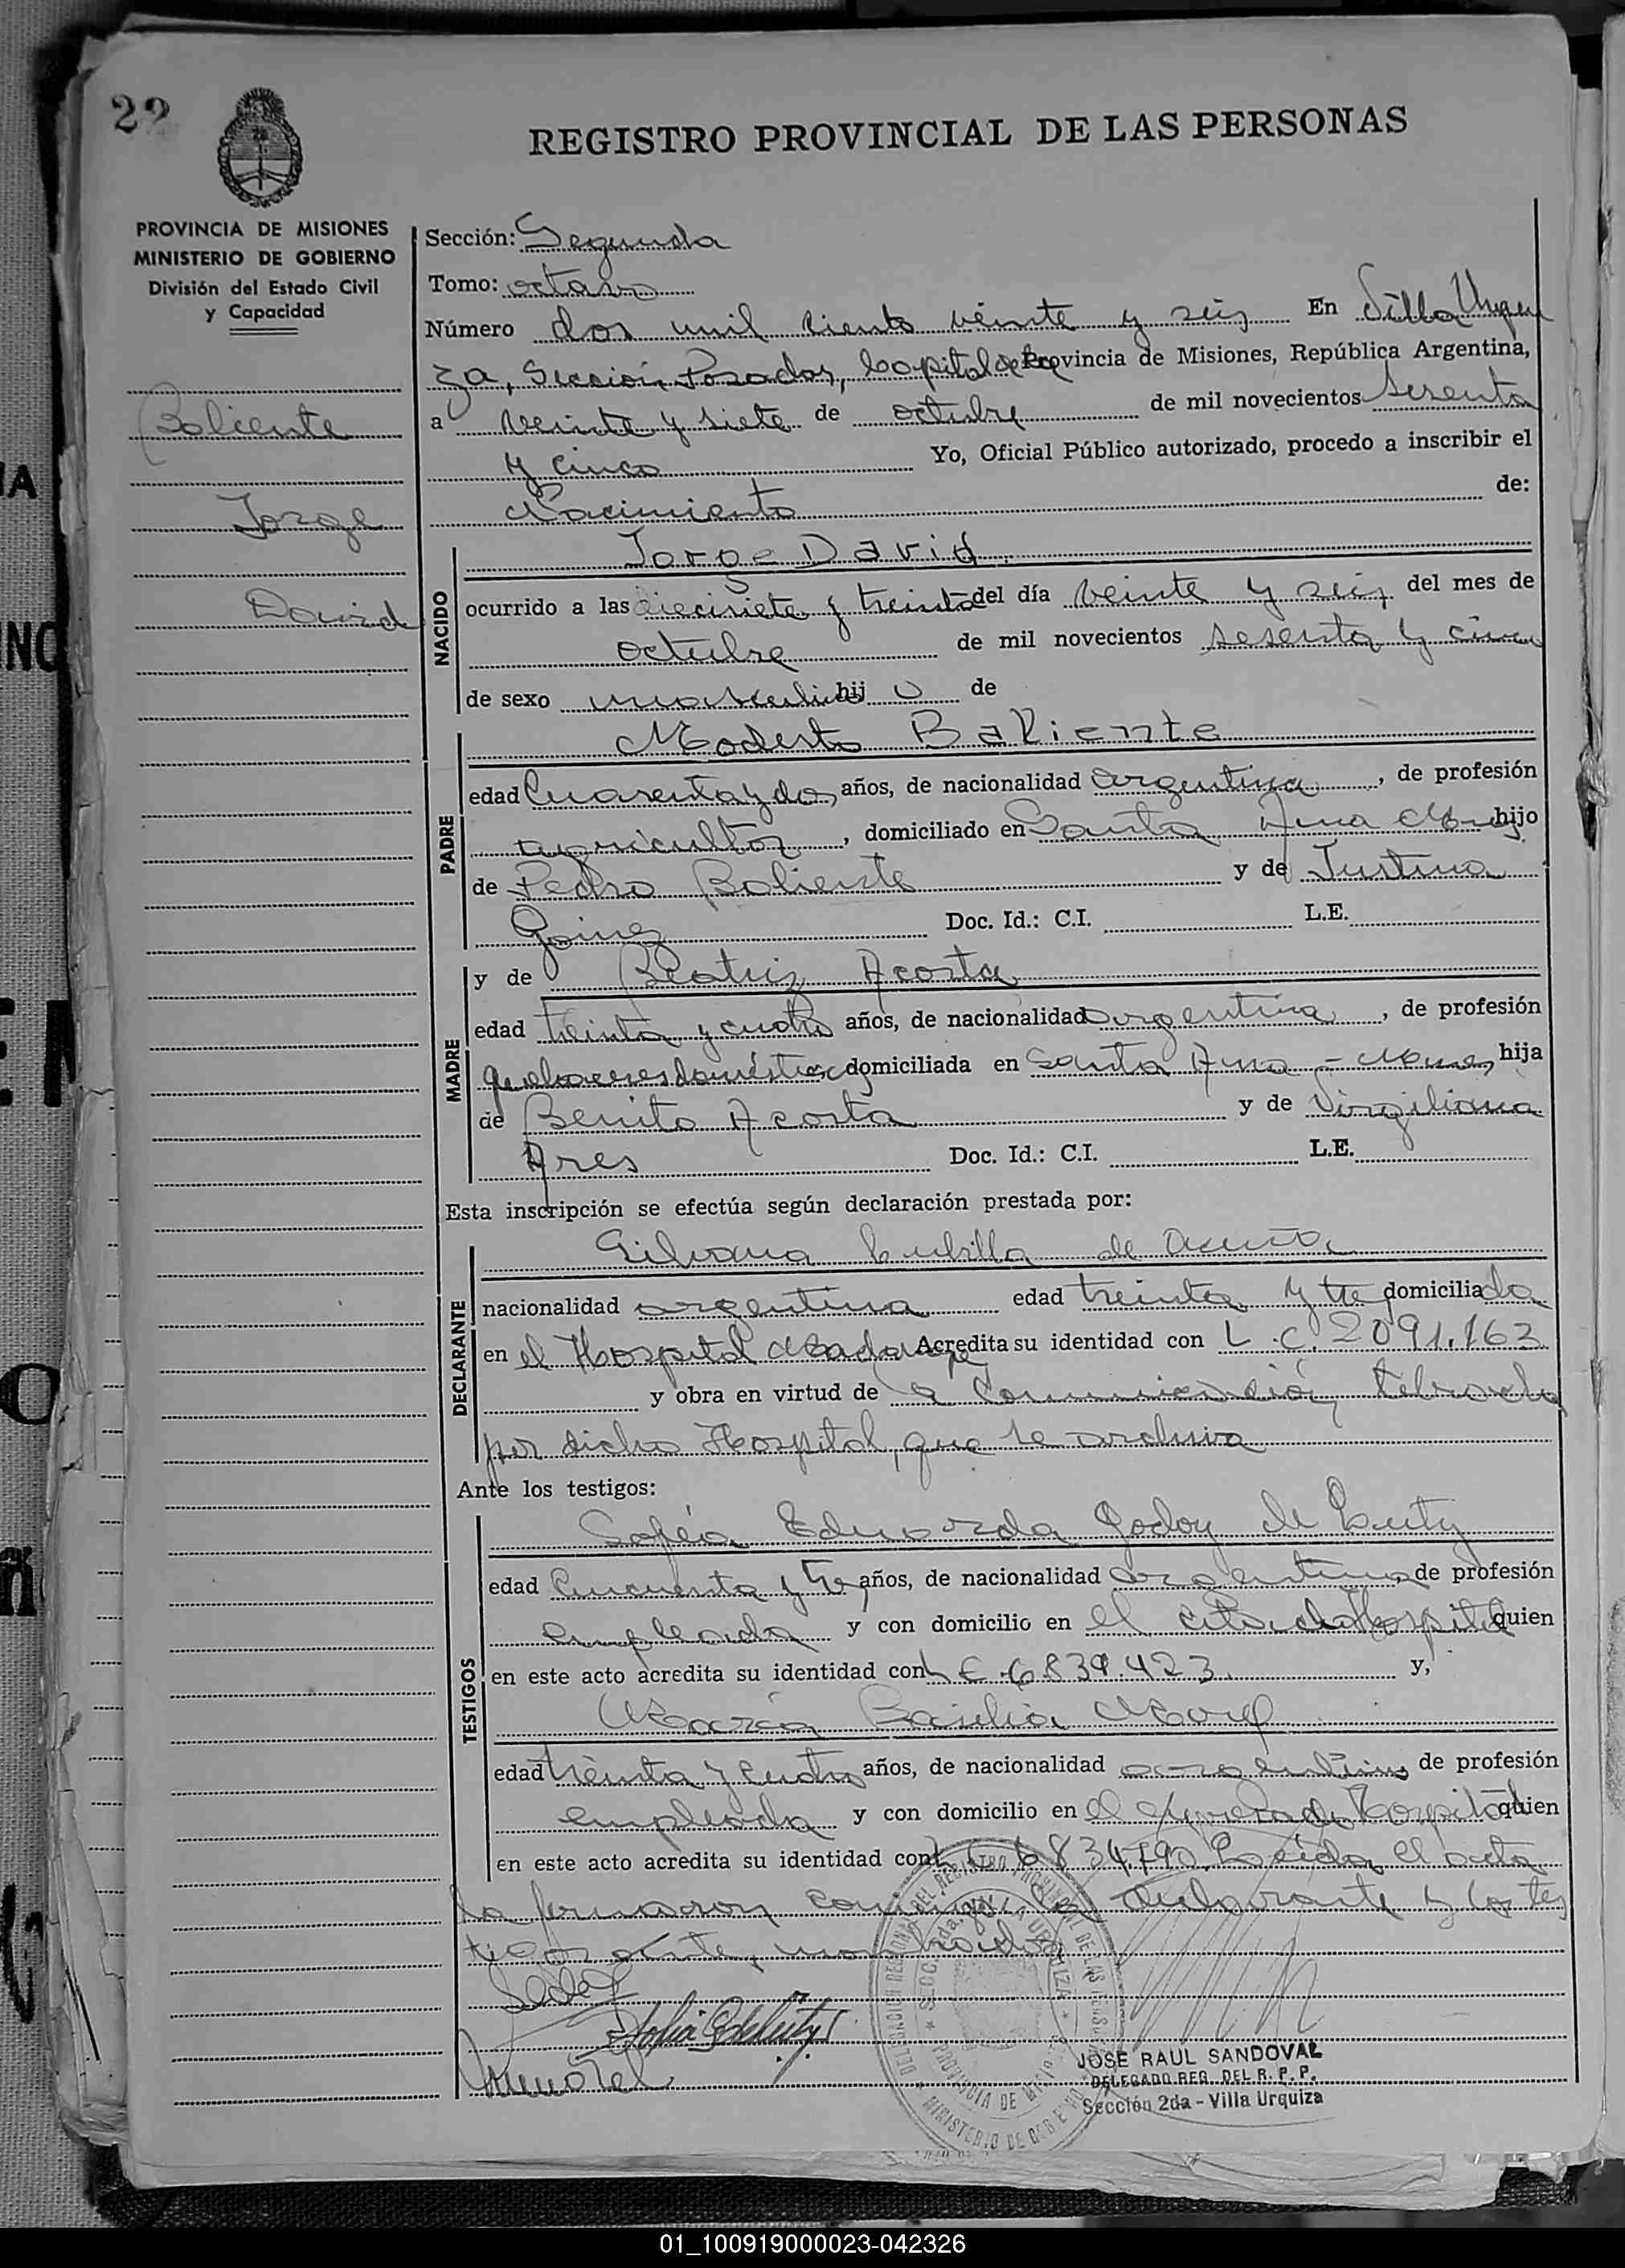 22
REGISTRO PROVINCIAL DE LAS PERSONAS
PROVINCIA DE MISIONES
MINISTERIO DE GOBIERNO
División del Estado Civil
y Capacidad
Baliente
Jorge
David
Sección: Segunda
Tomo: octavo
Número dos mil ciento veinte y seis En Villa Urqui
za, Sección Posadas, Capital de la Provincia de Misiones, República Argentina,
a veinte y siete de octubre de mil novecientos sesenta
y cinco Yo, Oficial Público autorizado, procedo a inscribir el
Nacimiento de:
NACIDO
Jorge David
ocurrido a las diecisiete y treinta del día veinte y seis del mes de
octubre de mil novecientos sesenta y cinco
de sexo masculino hij o de
PADRE
Modesto Baliente
edad cuarenta y dos años, de nacionalidad argentina, de profesión
agricultor, domiciliado en Santa Ana Mnes hijo
de Pedro Baliente y de Justina
Gomez Doc. Id.: C.I. L.E.
MADRE
y de Beatriz Acosta
edad treinta y cuatro años, de nacionalidad argentina, de profesión
quehaceres domésticos domiciliada en Santa Ana - Mnes, hija
de Benito Acosta y de Virgiliana
Ares Doc. Id.: C.I. L.E.
Esta inscripción se efectúa según declaración prestada por:
DECLARANTE
Silvana Cubilla de Acuña
nacionalidad argentina edad treinta y tre domiciliada
en el Hospital Madariaga Acredita su identidad con L.C. 2091.163
y obra en virtud de a Comunicación
por dicho Hospital, que se archiva
Ante los testigos:
TESTIGOS
Sofía Eduarda Godoy de
edad cincuenta y tres años, de nacionalidad argentina de profesión
empleada y con domicilio en el citado Hospital quien
en este acto acredita su identidad con L C 6839.423 y,
María Basilia
edad treinta y cuatro años, de nacionalidad argentina de profesión
empleada y con domicilio en el expresado Hospital quien
en este acto acredita su identidad con L C 6834790 Leída el acta
la firmaron conmigo, la declarante y los tes
tigos
JOSE RAUL SANDOVAL
DELEGADO REG. DEL R. P. P.
Sección 2da - Villa Urquiza
01_100919000023-042326